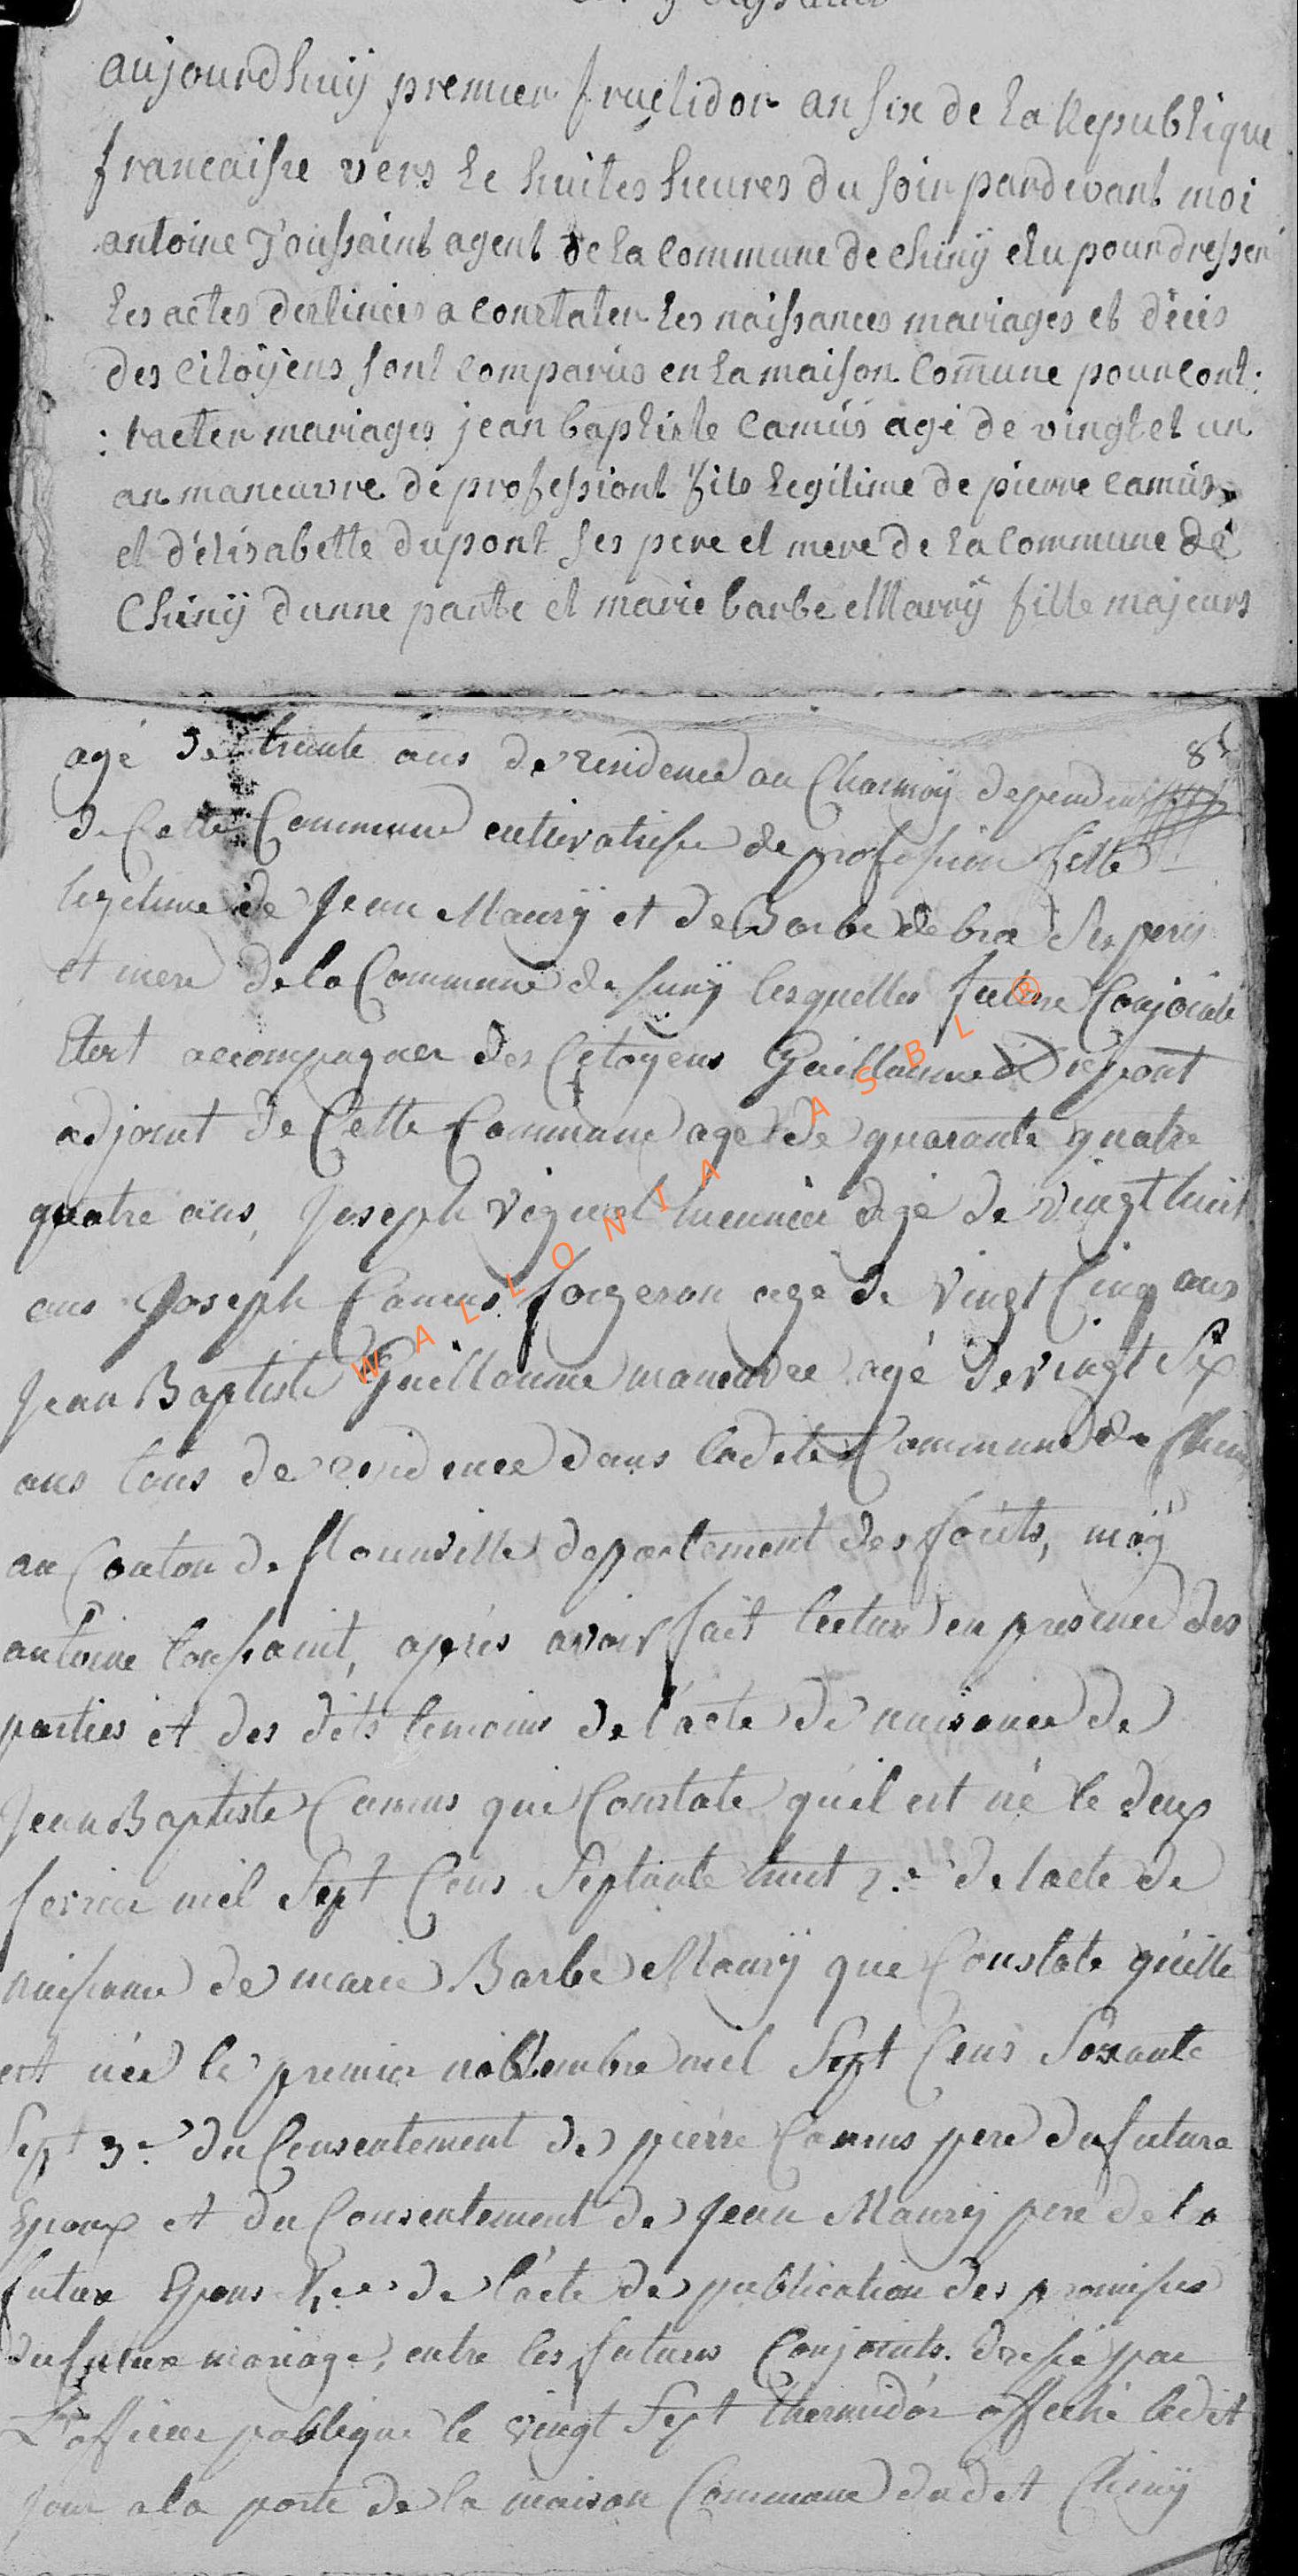 aujourdhuÿ premier fructidor an six de la Republique
francaisse vers le huites heures du soir pardevant moi
antoine Toussaint agent de la commune de chinÿ elu pour dresser
les actes destineés a constater les naissances mariages et décés
des citoÿens sont comparus en la maison com̄une pour cont:
:racter mariages jean baptiste camus agé de vingt et un
an maneuvre de professiont fils legitime de pierre camus
et d'élisabette dupont ses pere et mere de la commune de
Chinÿ dunne parte et marie barbe Maurÿ fille majeurs
agé de trente ans de residence au Charmoÿ
de Cette Commune cultivatrisse de profession fille
legitime de Jean Maurÿ et de Barbe debra ses perij
et mere de la Commune de lesquelles future Conjoints
accompagner des Citoyens Guillaume Dupont
adjoint de Cette Commune age de quarante quatre
quatre ans, Joseph meunier agé de vingt huit
ans Joseph Camus forgeron agé de vingt Cinq ans
Jean Baptiste Guillaume maneuvre agé de vingt Six
ans tous de residence dans ladite Commune de
au Canton de departement des forêts, moÿ
antoine toussaint, aprés avoir fait lecture en presence des
parties et des dits temoins de l'acte de naisance de
Jean Baptiste Camus que Constate qu'il est né le deux
fevrier mil Sept Cens Septante huit 2.e de lacte de
naissance de marie Barbe Maurÿ que Constate qu'elle
est née le premier novembre mil Sept Cens Soixante
Sept 3.e du Consentement de pierre Camus pere du future
Epoux et du Consentement de Jean Maurÿ pere de la
future Epous 4.e de l'acte de publication des promisses
du future mariage, entre les futurs Conjoints. dressé par
L'officier publique le vingt Sept thermidór affiché ledit
jour a la porte de la maison Commune dudit Chinÿ
WALLONIA ASBL ®